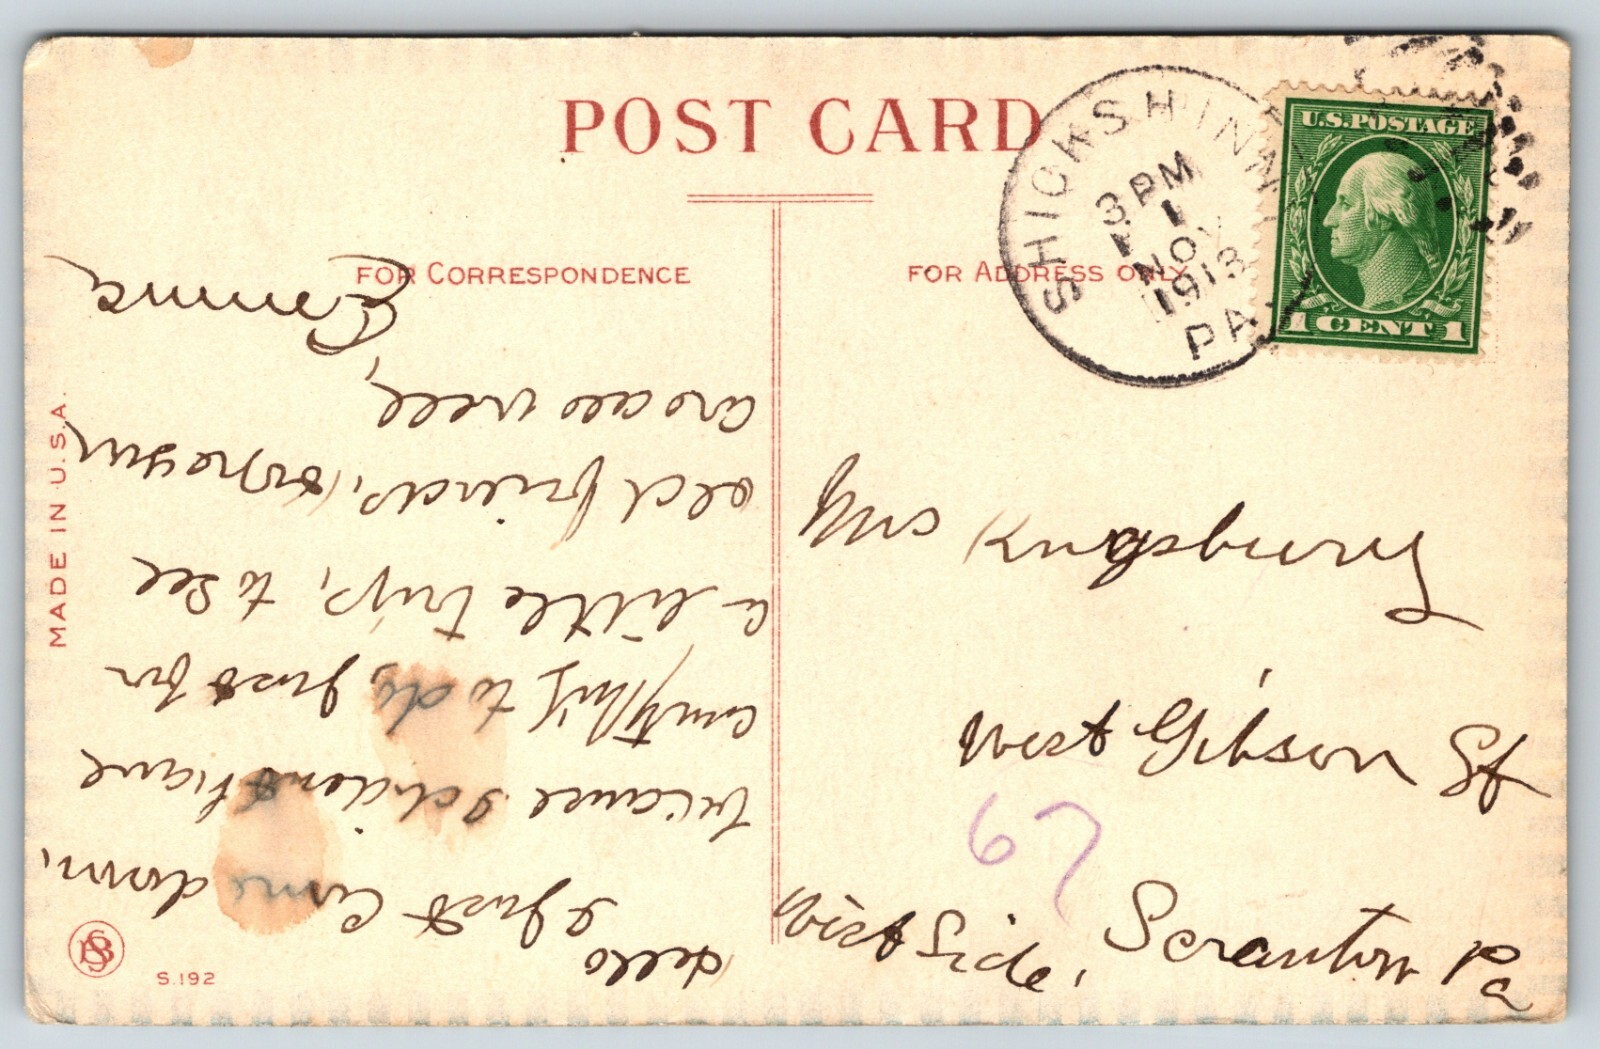 POST CARD
FOR CORRESPONDENCE
FOR ADDRESS ONLY
SHICKSHINNY
3 PM
1
NOV
1913
PA.
U.S. POSTAGE
1 CENT 1
Hello
I just Came down,
because I didn't have
anything to do, just for
a little trip, to see
old friends,
are well,
Emma,
Kingsbury
West Gibson St
67
West Side, Scranton Pa
MADE IN U.S.A.
S.192